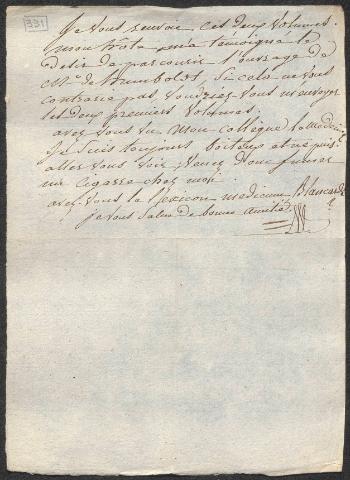 331
Je vous renvoie ces deux volumes.
mon hôte m'a témoigné le
desir de parcourir l'ouvrage de
Mr. de Humboldt, si cela ne vous
contrarie pas voudriez vous m'envoyer
les deux premiers volumes.
avez vous vu mon collègue le medecin
je suis toujours boiteux et ne puis
aller vous voir; venez donc fumer
un cigarre chez moi.
avez vous le Lexicon medicum Blancardi?
je vous salue de bonne amitié.